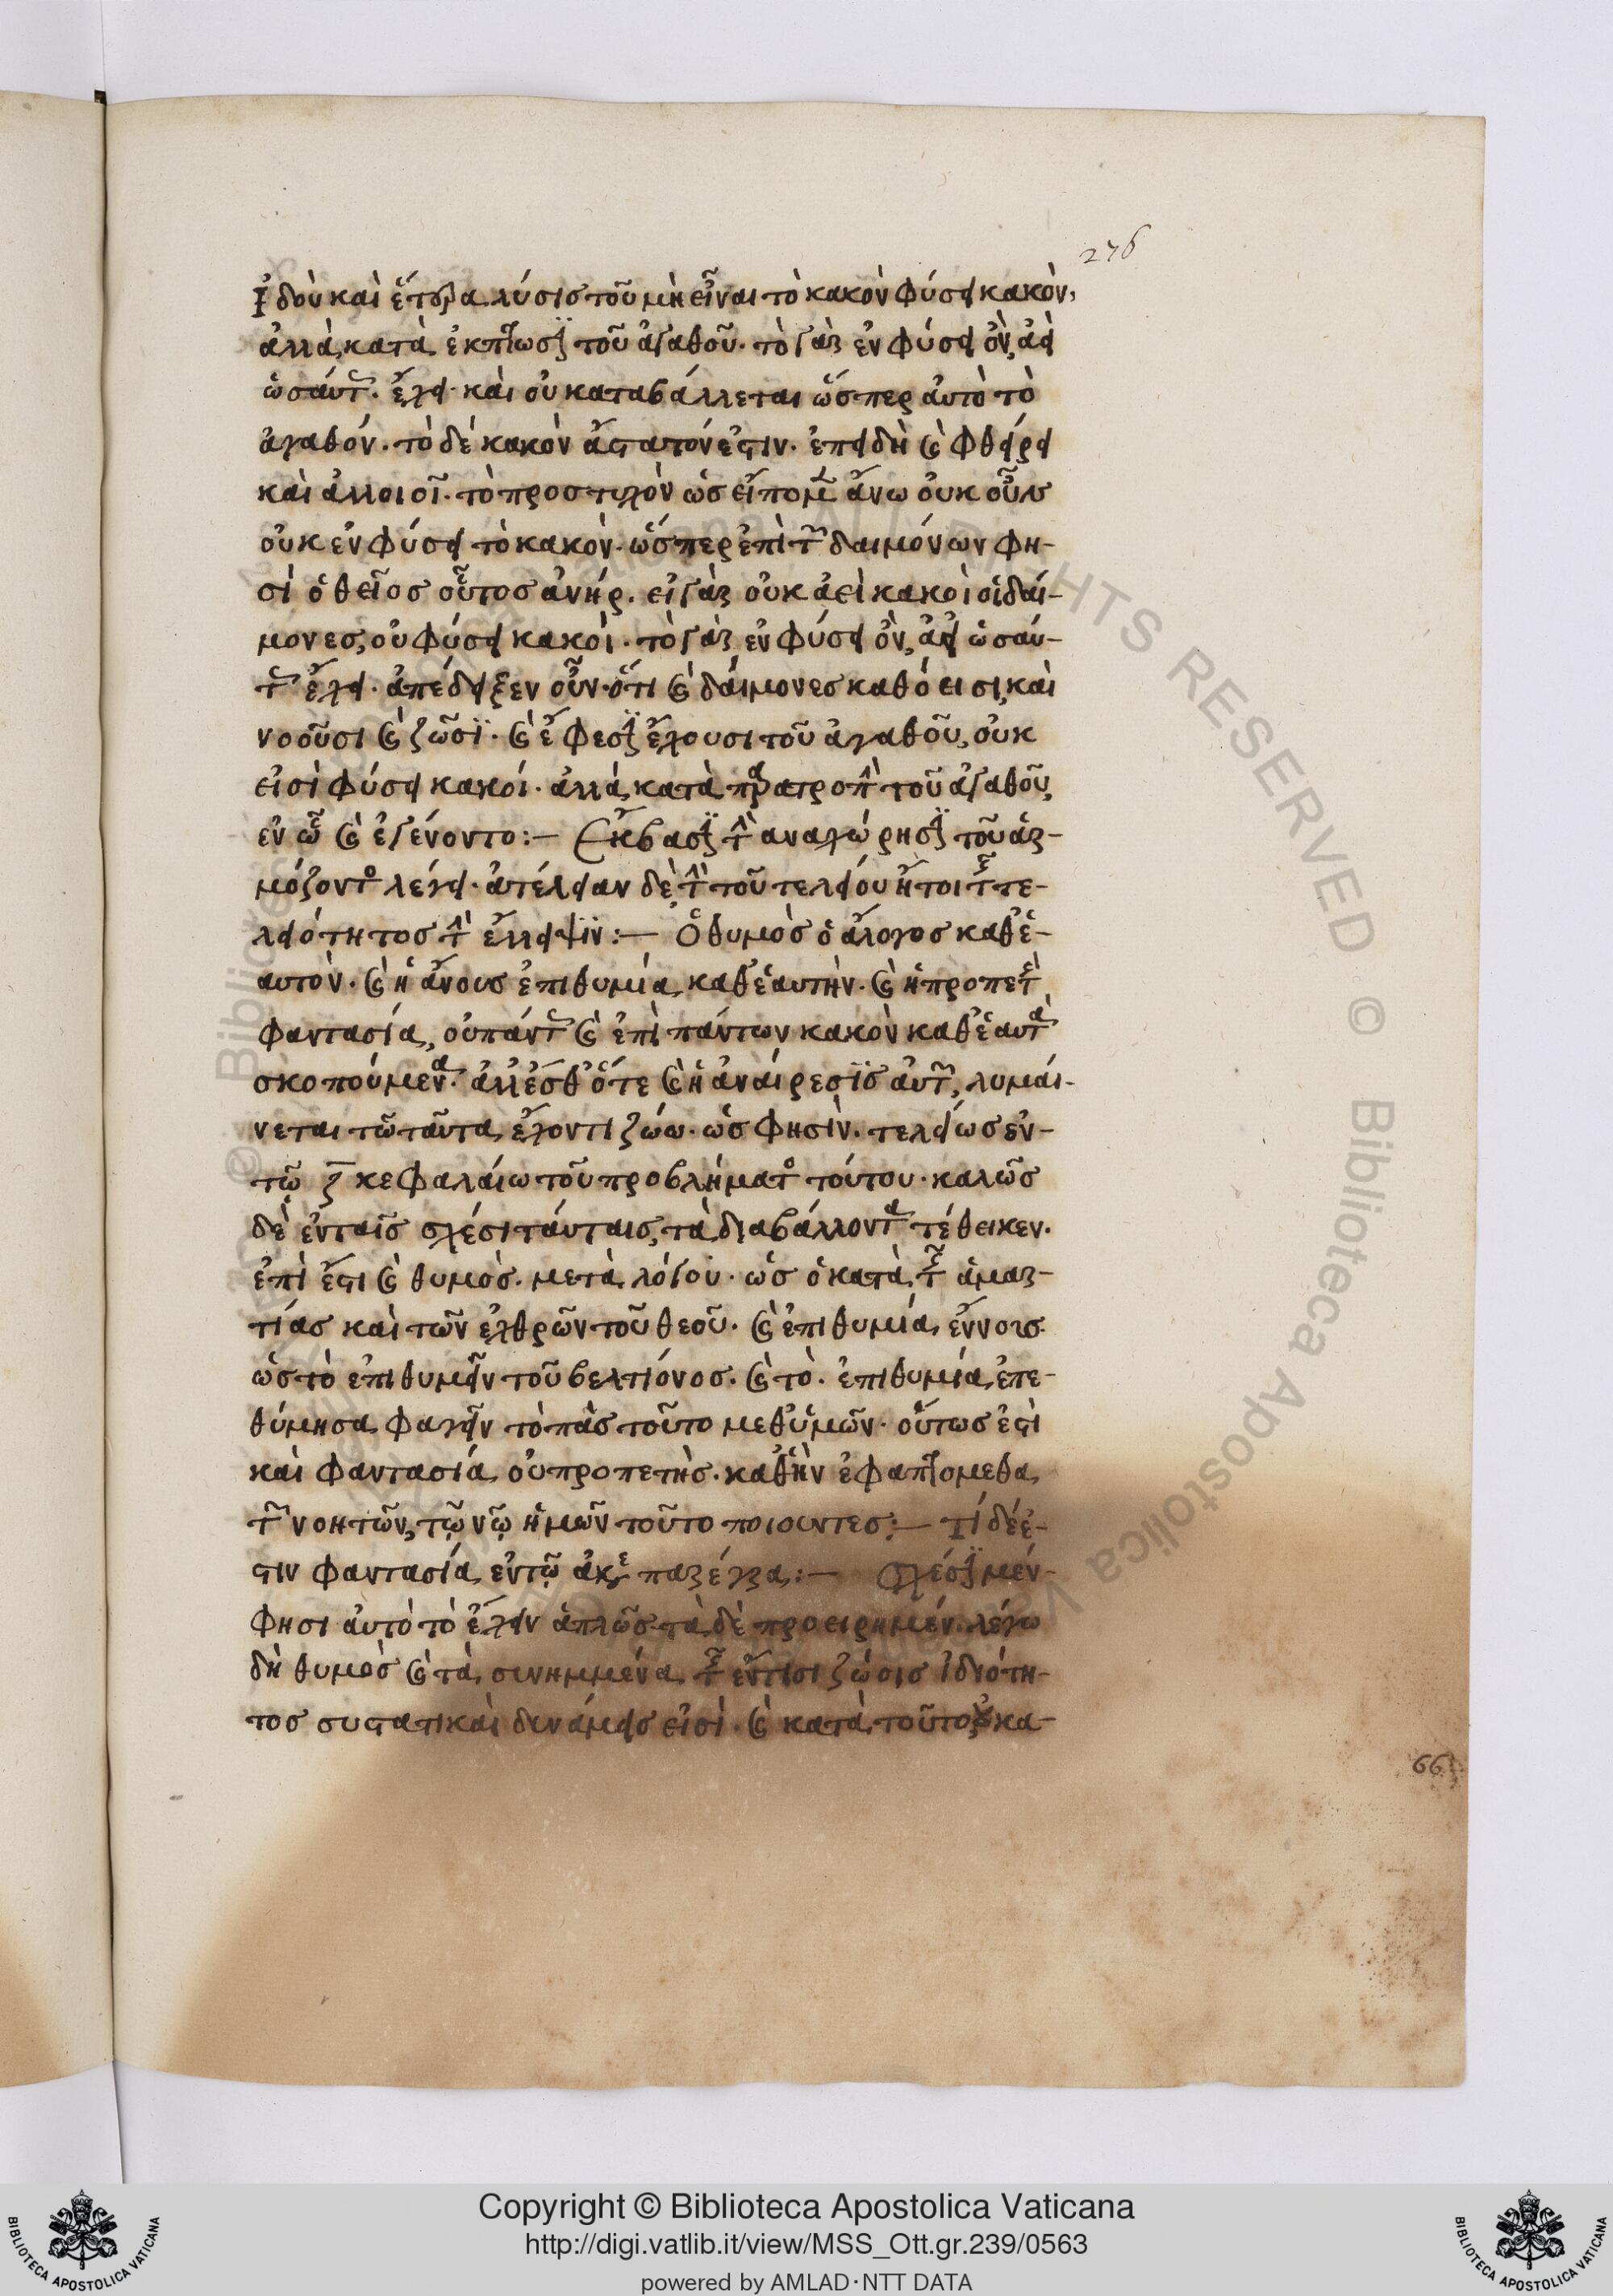 276
Ἰδοὺ καὶ ἑτέρα λύσις τοῦ μὴ εἶναι τὸ κακὸν φύσει κακὸν,
ἀλλὰ κατὰ ἔκπτωσιν τοῦ ἀγαθοῦ. τὸ γὰρ ἐν φύσει ὂν, ἀεὶ
ὡσαύτως ἔχει. καὶ οὐ καταβάλλεται ὥσπερ αὐτὸ τὸ
ἀγαθόν. τὸ δὲ κακὸν ἄστατόν ἐστιν. ἐπειδὴ καὶ φθείρει
καὶ ἀλλοιοῖ. τὸ προστυχὸν ὡς εἴπομεν ἄνω οὐκ οὖν
οὐκ ἐν φύσει τὸ κακὸν. ὥσπερ ἐπὶ τῶν δαιμόνων φη-
σὶ ὁ θεῖος οὗτος ἀνήρ. εἰ γὰρ οὐκ ἀεὶ κακοὶ οἱ δαί-
μονες, οὐ φύσει κακοὶ. τὸ γὰρ ἐν φύσει ὂν, ἀεὶ ὡσαύ-
τως ἔχει. ἀπέδειξεν οὖν. ὅτι καὶ δαίμονες καθό εἰσι, καὶ
νοοῦσι καὶ ζῶσι. καὶ ἔφεσιν ἔχουσι τοῦ ἀγαθοῦ, οὐκ
εἰσὶ φύσει κακοί. ἀλλὰ κατὰ παρατροπὴν τοῦ ἀγαθοῦ,
ἐν ᾧ καὶ ἐγένοντο:— Ἔκβασιν τὴν ἀναχώρησιν τοῦ ἁρ-
μόζοντος λέγει. ἀτέλειαν δὲ, τὴν τοῦ τελείου ἤτοι τῆς τε-
λειότητος τὴν ἔλλειψιν:— Ὁ θυμὸς ὁ ἄλογος καθ' ἑ-
αυτὸν. καὶ ἡ ἄνους ἐπιθυμία καθ' ἑαυτὴν. καὶ ἡ προπετὴς
φαντασία, οὐ πάντως καὶ ἐπὶ πάντων κακὸν καθ' ἑαυτὰ
σκοπούμενα. ἀλλ' ἔσθ' ὅτε καὶ ἡ ἀναίρεσις αὐτῶν, λυμαί-
νεται τῷ ταῦτα ἔχοντι ζώω. ὡς φησὶν. τελείως ἐν-
τῷ ζ κεφαλαίω τοῦ προβλήματος τούτου. καλῶς
δὲ ἐν ταῖς σχέσι ταύταις, τὰ διαβάλλοντα τέθεικεν.
ἐπὶ ἔστι καὶ θυμὸς. μετὰ λόγου. ὡς ὁ κατὰ τῆς ἁμαρ-
τίας καὶ τῶν ἐχθρῶν τοῦ θεοῦ. καὶ ἐπιθυμία ἔννους
ὡς τὸ ἐπιθυμεῖν τοῦ βελτίονος. καὶ τὸ. ἐπιθυμία ἐπε-
θύμησα φαγεῖν τὸ πάσ τοῦτο μεθ' ὑμῶν. οὕτως ἐστὶ
καὶ φαντασία οὐ προπετὴς. καθ' ἣν ἐφαπτόμεθα
τῶν νοητῶν, τῷ νῷ ἡμῶν τοῦτο ποιοῦντες:— Τί δέ ἐ-
στιν φαντασία ἐν τῷ παρέργα:— Σχέσιν μέν-
φησι αὐτὸ τὸ ἔχειν ἁπλῶς. τὰ δὲ προειρημέν. λέγω
δὴ θυμὸς καὶ τὰ συνημμένα τῆς ἔν τισι ζώοις ἰδιότη-
τος συστατικαὶ δυνάμεις εἰσὶ. καὶ κατὰ τοῦτο οὐ κα-
66
Copyright © Biblioteca Apostolica Vaticana
http://digi.vatlib.it/view/MSS_Ott.gr.239/0563
powered by AMLAD·NTT DATA